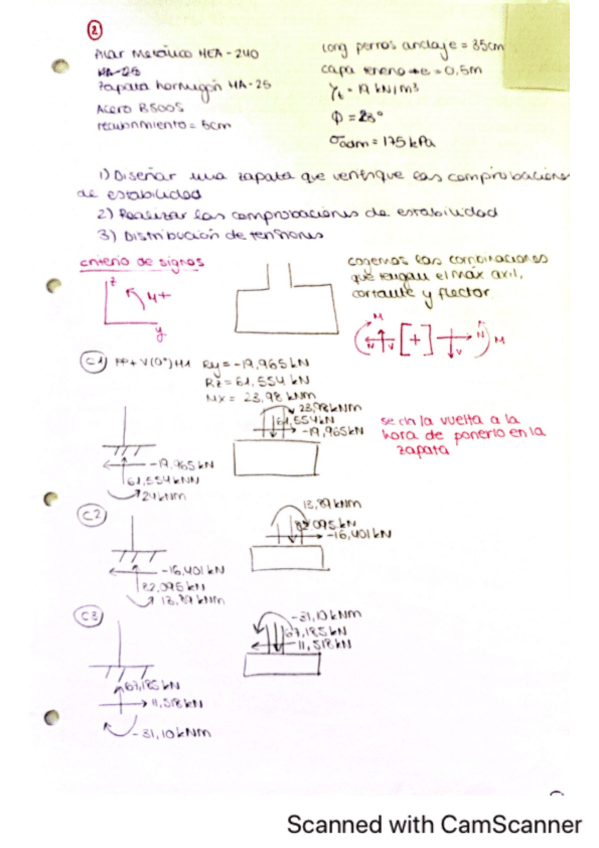 2
Pilar metálico HEA-240
HA-25
Zapata hormigón HA-25
Acero B500S
recubrimiento = 5cm
long pernos anclaje = 35cm
capa terreno → e = 0,5m
γt = 19 kN/m³
Φ = 28°
σadm = 175 kPa
1) Diseñar una zapata que verifique las comprobaciones
de estabilidad
2) Realizar las comprobaciones de estabilidad
3) Distribución de tensiones
criterio de signos
z
M+
y
cogemos las combinaciones
que tengan el máx axil,
cortante y flector
M
N
V
[+]
V
N
M
C1) PP+V(0°)H1 Ry = -19,965 kN
Rz = 61,554 kN
Mx = 23,98 kNm
23,98 kNm
61,554 kN
-19,965 kN
se da la vuelta a la
hora de ponerlo en la
zapata
-19,965 kN
61,554 kN
24 kNm
C2
13,89 kNm
82,095 kN
-16,401 kN
-16,401 kN
82,095 kN
13,89 kNm
C3
-31,10 kNm
67,185 kN
11,518 kN
67,185 kN
11,518 kN
-31,10 kNm
Scanned with CamScanner